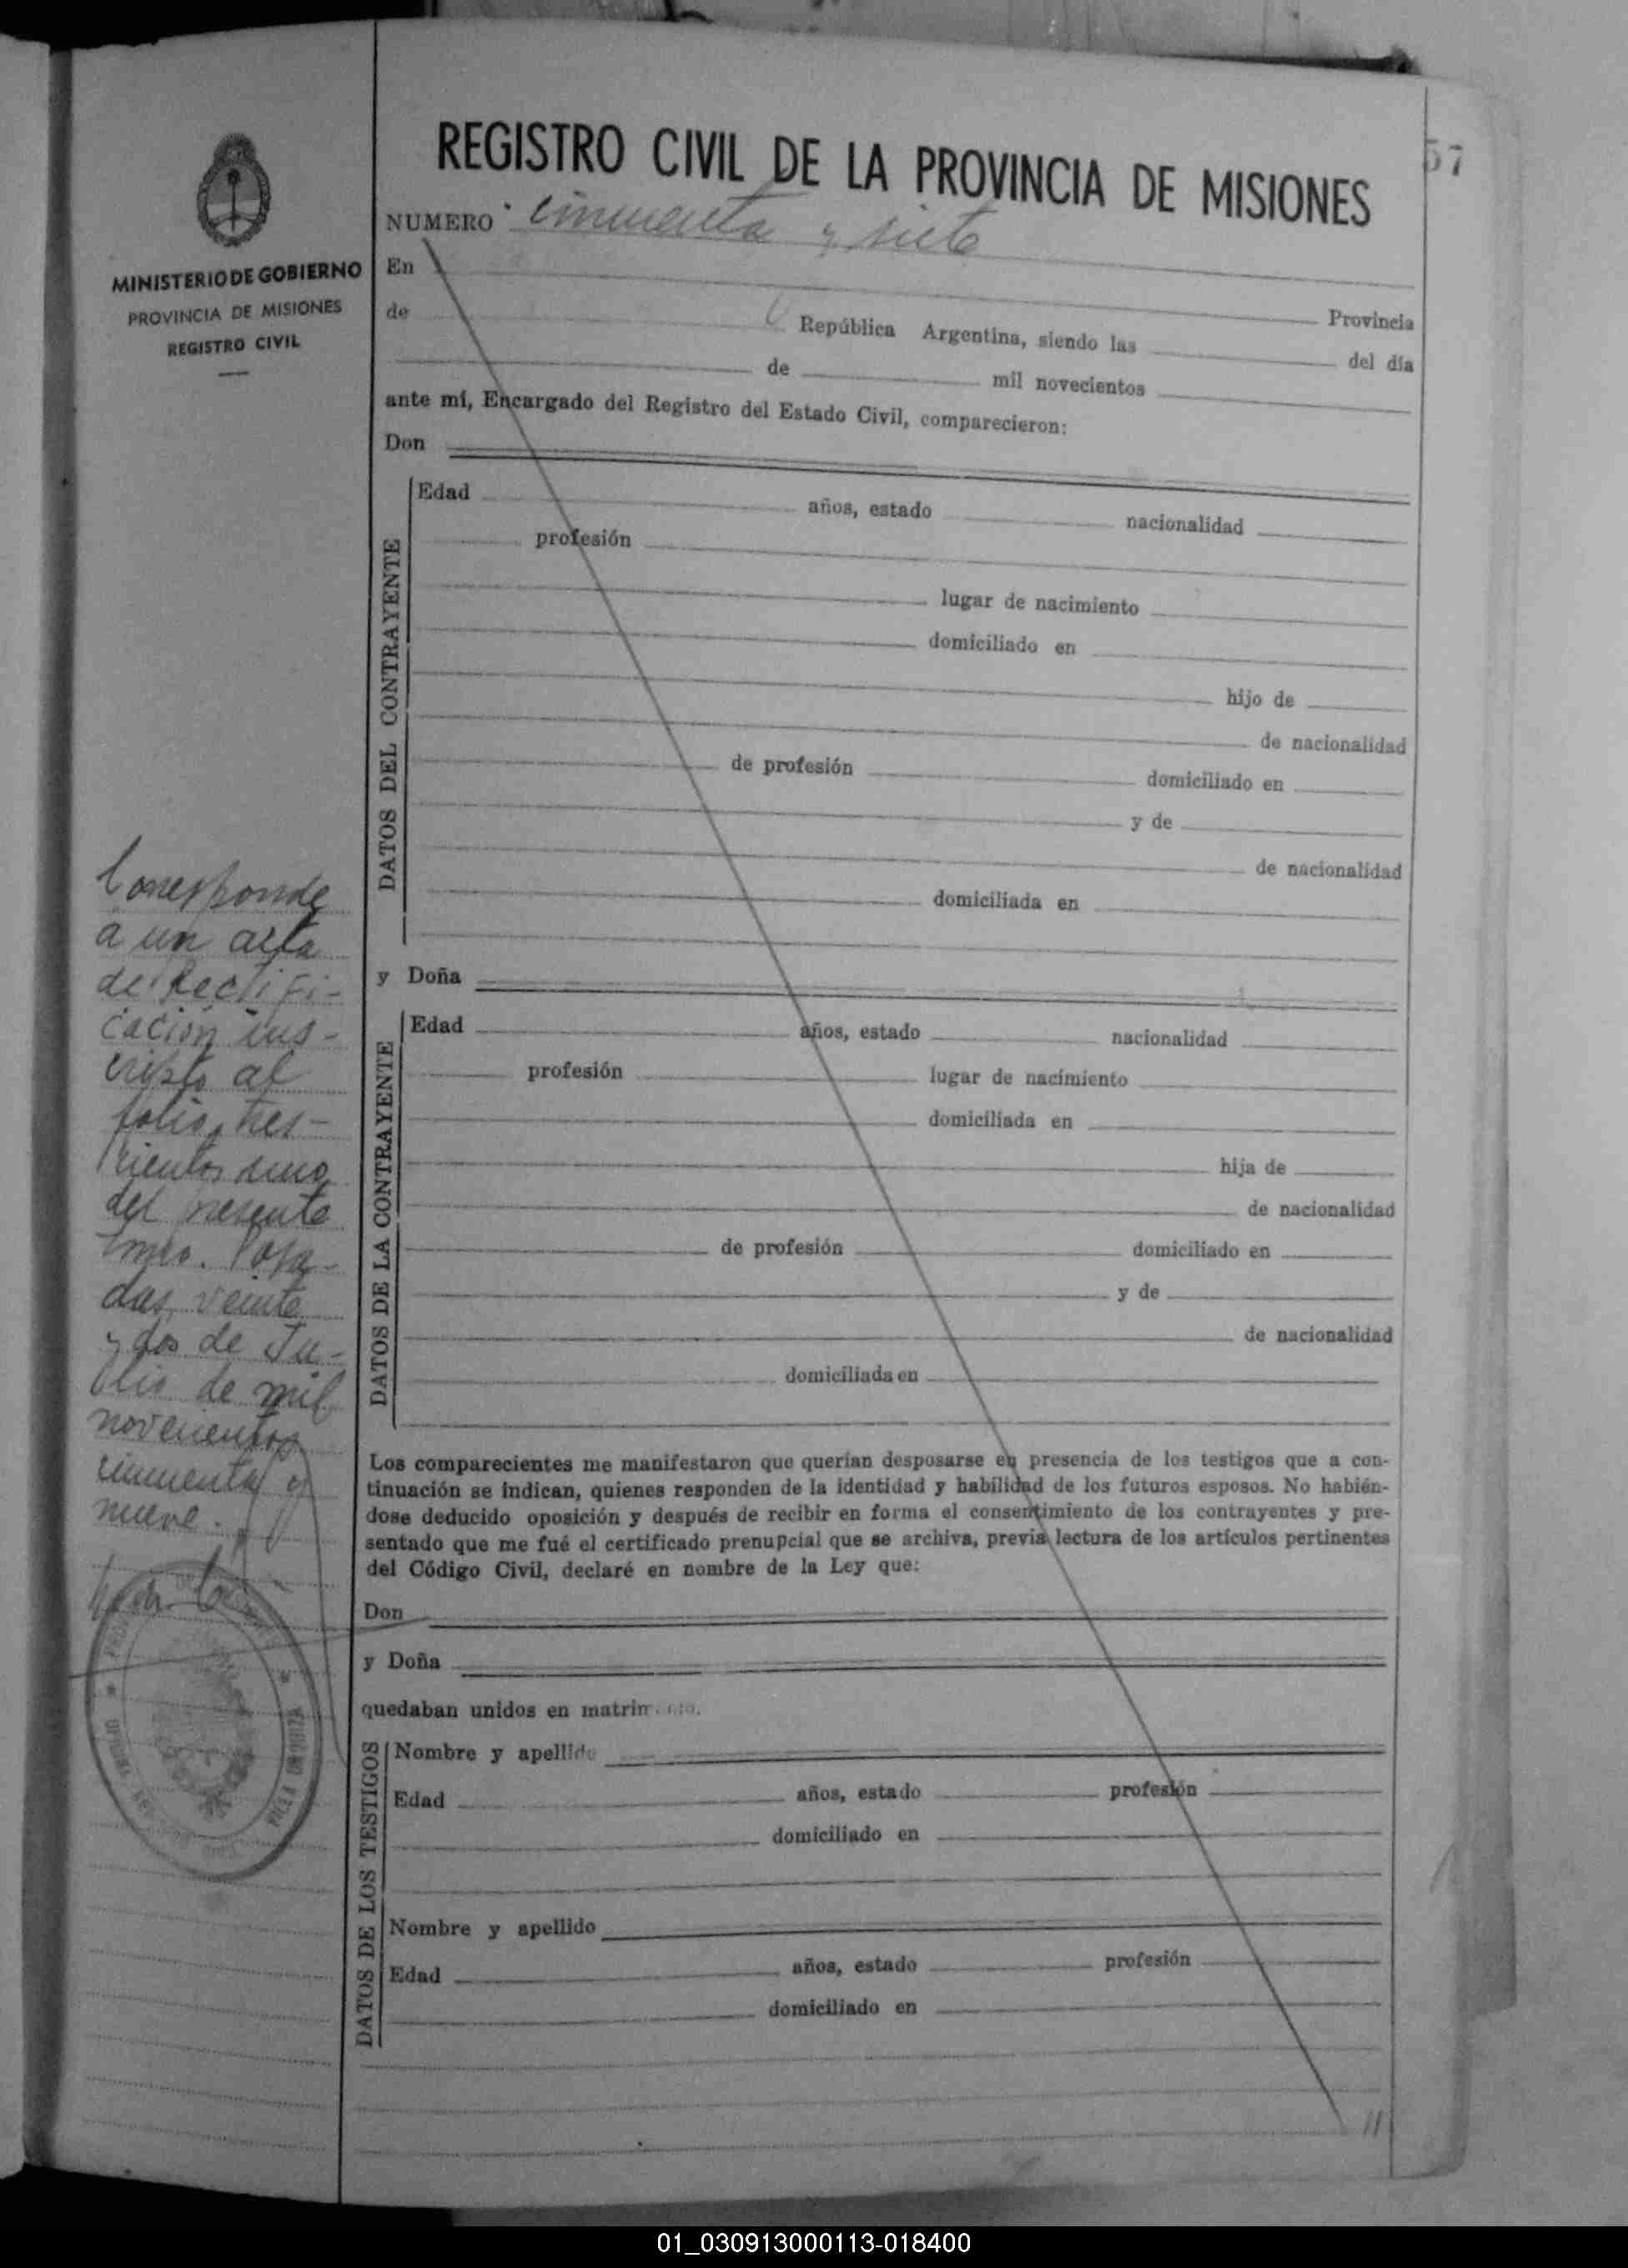 57
REGISTRO CIVIL DE LA PROVINCIA DE MISIONES
MINISTERIO DE GOBIERNO
PROVINCIA DE MISIONES
REGISTRO CIVIL
NUMERO cincuenta y siete
En Provincia
de República Argentina, siendo las del día
de mil novecientos
ante mí, Encargado del Registro del Estado Civil, comparecieron:
Don
DATOS DEL CONTRAYENTE
Edad años, estado nacionalidad
profesión
lugar de nacimiento
domiciliado en
hijo de
de nacionalidad
de profesión domiciliado en
y de
de nacionalidad
domiciliada en
y Doña
DATOS DE LA CONTRAYENTE
Edad años, estado nacionalidad
profesión lugar de nacimiento
domiciliada en
hija de
de nacionalidad
de profesión domiciliado en
y de
de nacionalidad
domiciliada en
Los comparecientes me manifestaron que querían desposarse en presencia de los testigos que a con-
tinuación se indican, quienes responden de la identidad y habilidad de los futuros esposos. No habién-
dose deducido oposición y después de recibir en forma el consentimiento de los contrayentes y pre-
sentado que me fué el certificado prenupcial que se archiva, previa lectura de los artículos pertinentes
del Código Civil, declaré en nombre de la Ley que:
Don
y Doña
quedaban unidos en matrimonio.
DATOS DE LOS TESTIGOS
Nombre y apellido
Edad años, estado profesión
domiciliado en
Nombre y apellido
Edad años, estado profesión
domiciliado en
Corresponde
a un acta
de Rectifi-
cación ins-
cripto al
folio tres-
cientos uno
del presente
tomo. Posa-
das, veinte
y dos de Ju-
lio de mil
novecientos
cincuenta y
nueve.
01_030913000113-018400